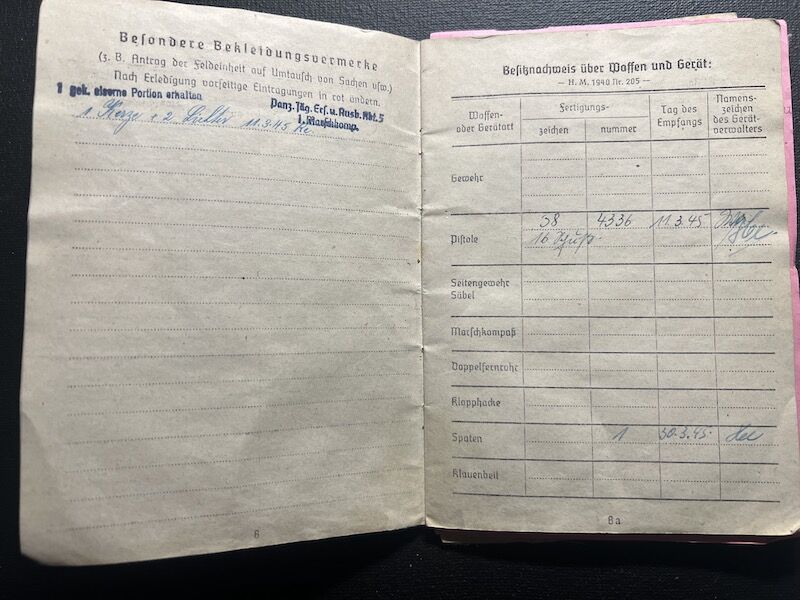 Besondere Bekleidungsvermerke
(z. B. Antrag der Feldeinheit auf Umtausch von Sachen usw.)
Nach Erledigung vorseitige Eintragungen in rot ändern.
1 gek. eiserne Portion erhalten
Panz. Jäg. Ers. u. Ausb. Abt. 5
1. Marschkomp.
1 Kerze + 2 Lichter 11.3.45
6
Besitznachweis über Waffen und Gerät:
— H. M. 1940 Nr. 205 —
Waffen- oder Gerätart
Fertigungs-
zeichen
nummer
Tag des Empfangs
Namens- zeichen des Gerät- verwalters
Gewehr
Pistole
38 4336 11.3.45
16 Schuß
Seitengewehr
Säbel
Marschkompaß
Doppelfernrohr
Klapphacke
Spaten 1 30.3.45
Klauenbeil
8a